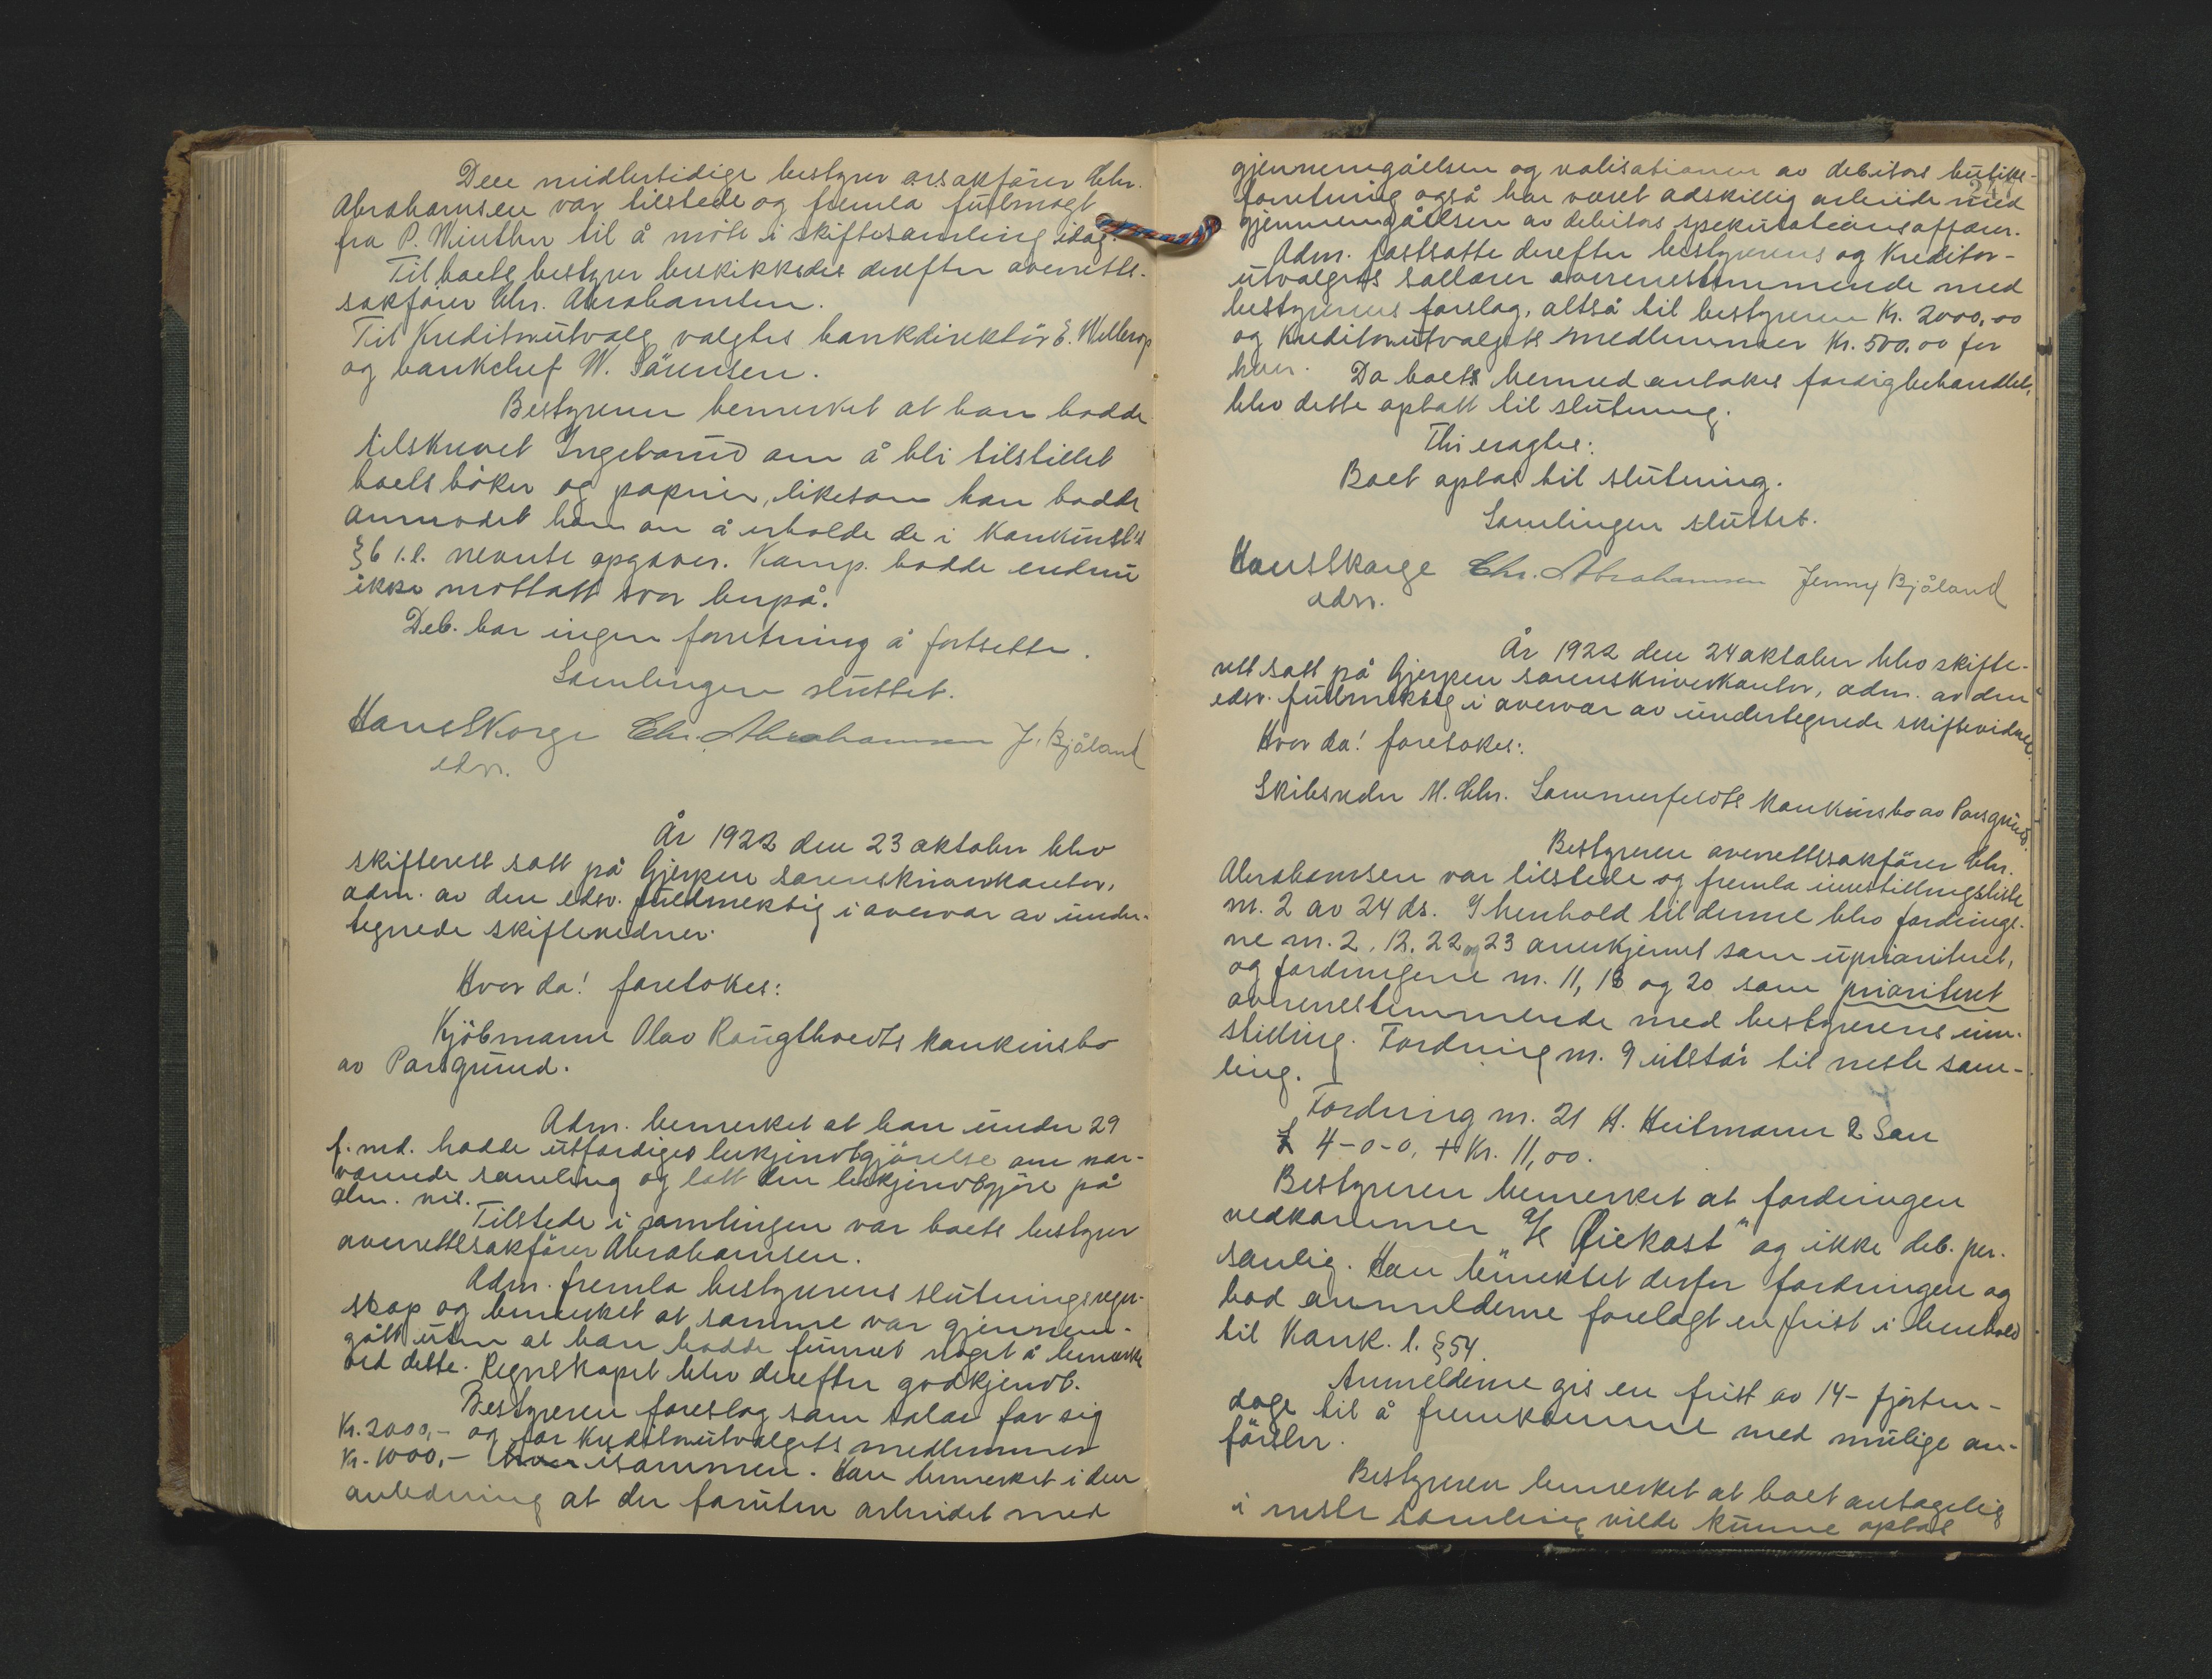 Den midlertidige bestyrer o.r.sakfører Chr.
Abrahamsen var tilstede og fremla fuldmagt
fra P. Winther til å møte i skiftesamling idag.
Til boets bestyrer beskikkedes derefter overretts-
sakfører Chr. Abrahamsen.
Til Kreditorutvalg valgtes bankdirektør E.
og bankchef W. Sørensen.
Bestyreren bemerket at han hadde
tilskrevet Ingebord om å bli tilstillet
boets bøker og papirer, likesom han hadde
anmodet ham om å erholde de i Konkursl's
§ 6 1.l. nevnte opgaver. Komp. hadde endnu
ikke mottatt svar herpå.
Deb. har ingen forretning å fortsette.
Samlingen sluttet.
Hans Skorge Chr. Abrahamsen J. Bjåland
edsv.
År 1922 den 23 oktober blev
skifterett satt på Gjerpen sorenskriverkontor,
adm. av den edsv. fuldmektig i overvær av under-
tegnede skiftevidner.
Hvor da! foretokes:
Kjøbmann Olav Rougthvedts konkursbo
av Porsgrund.
Adm. bemerket at han under 29
f. md. hadde utfærdiget bekjendtgjørelse om nær-
værende samling og latt den bekjendtgjøre på
alm. vis.
Tilstede i samlingen var boets bestyrer
overrettssakfører Abrahamsen.
Adm. fremla bestyrerens slutningsregn-
skap og bemerket at samme var gjennem-
gått uten at han hadde funnet noget å bemerke
ved dette. Regnskapet blev derefter godkjendt.
Bestyreren foreslog som salær for sig
Kr. 2000,- og for Kreditorutvalgets medlemmer
Kr. 1000,- sammen. Han bemerket i den
anledning at der foruten arbeidet med
gjennemgåelsen og realisationen av debitors butikk-
forretning også har været adskillig arbeide med
gjennemgåelsen av debitors spekulationsaffærer.
Adm. fastsatte derefter bestyrerens og Kreditor-
utvalgets sallærer overensstemmende med
bestyrerens forslag, altså til bestyreren Kr. 2000,00
og Kreditorutvalgets medlemmer Kr. 500,00 for
hver. Da boets hermed antokes færdigbehandlet,
blev dette optatt til slutning.
Thi eragtes:
Boet optas til slutning.
Samlingen sluttet.
Hans Skorge Chr. Abrahamsen Jenny Bjåland
edsv.
År 1922 den 24 oktober blev skifte-
rett satt på Gjerpen sorenskriverkontor, adm. av den
edsv. fuldmektig i overvær av undertegnede skiftevidner.
Hvor da! foretokes:
Skibsreder M. Chr. Sommerfeldts konkursbo av Porsgrund.
Bestyreren overrettssakfører Chr.
Abrahamsen var tilstede og fremla innstillingsliste
nr. 2 av 24 ds. I henhold til denne blev fordringe-
ne nr. 2, 12, 22 og 23 anerkjennet som uprioritert,
og fordringene nr. 11, 13 og 20 som prioritert
overensstemmende med bestyrerens inn-
stilling. Fordring nr. 9 utstår til neste sam-
ling.
Fordring nr. 21 H. Heitmann & Søn
£ 4-0-0. + Kr. 11,00.
Bestyreren bemerket at fordringen
vedkommer A/S "Øiekast" og ikke deb. per-
sonlig. Han benektet derfor fordringen og
bad anmelderne forelagt en frist i henhold
til Konk. l. § 54.
Anmelderne gis en frist av 14- fjorten-
dage til å fremkomme med mulige an-
førsler.
Bestyreren bemerket at boet antagelig
i neste samling vilde kunne optas